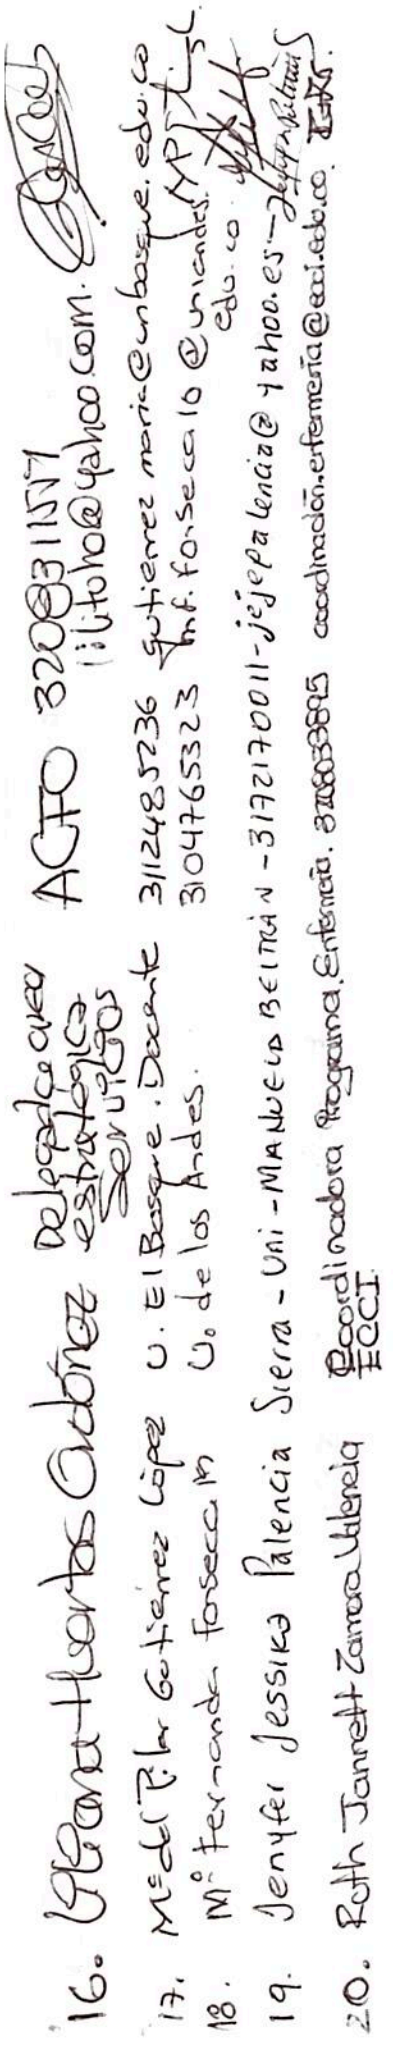 16. Liliana Huertos Ordóñez Delegada area ACFO 3208311517
estratégica lilitoho@yahoo.com.
Servicios
17. Mª del Pilar Gutiérrez López U. El Bosque. Docente 3112485236 gutierrez maria@unbosque.edu.co
18. Mª Fernanda Fonseca U. de los Andes. 3104765323 mf.fonseca10@uniandes.
edu.co.
19. Jenyfer Jessika Palencia Sierra - Uni - MANUELA BELTRÁN - 3172170011 - jejepalencia@yahoo.es -
20. Ruth Jannett Zamora Valencia Coordinadora Programa Enfermería. coordinación.enfermeria@ecci.edu.co.
ECCI.